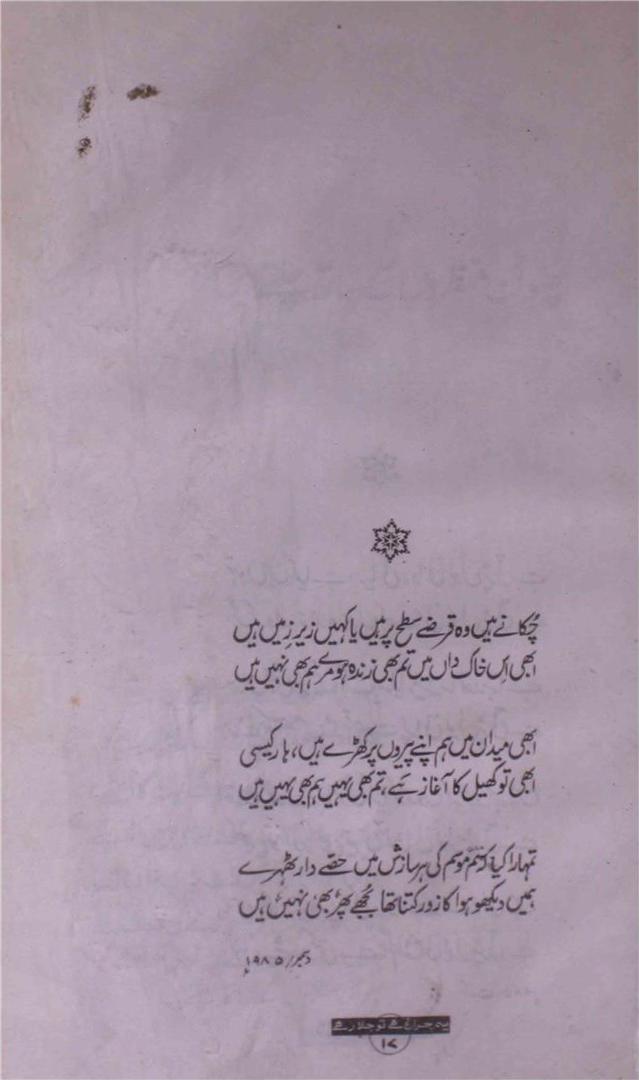 چُکانے ہیں وہ قرضے سطح پر ہیں یا کہیں زیرِ زمیں ہیں
ابھی اِس خاک داں میں تم بھی زندہ ہو مرے ہم بھی نہیں ہیں
ابھی میدان میں ہم اپنے پیروں پر کھڑے ہیں، ہار کیسی
ابھی تو کھیل کا آغاز ہے، تم بھی یہیں ہم بھی یہیں ہیں
تمہارا کیا کہ تم موسم کی ہر سازش میں حصّے دار ٹھہرے
ہمیں دیکھو ہوا کا زور کتنا تھا بُجھے پھر بھی نہیں ہیں
دسمبر ۱۹۸۵ء
یہ چراغ ہے تو جلا رہے
۱۷